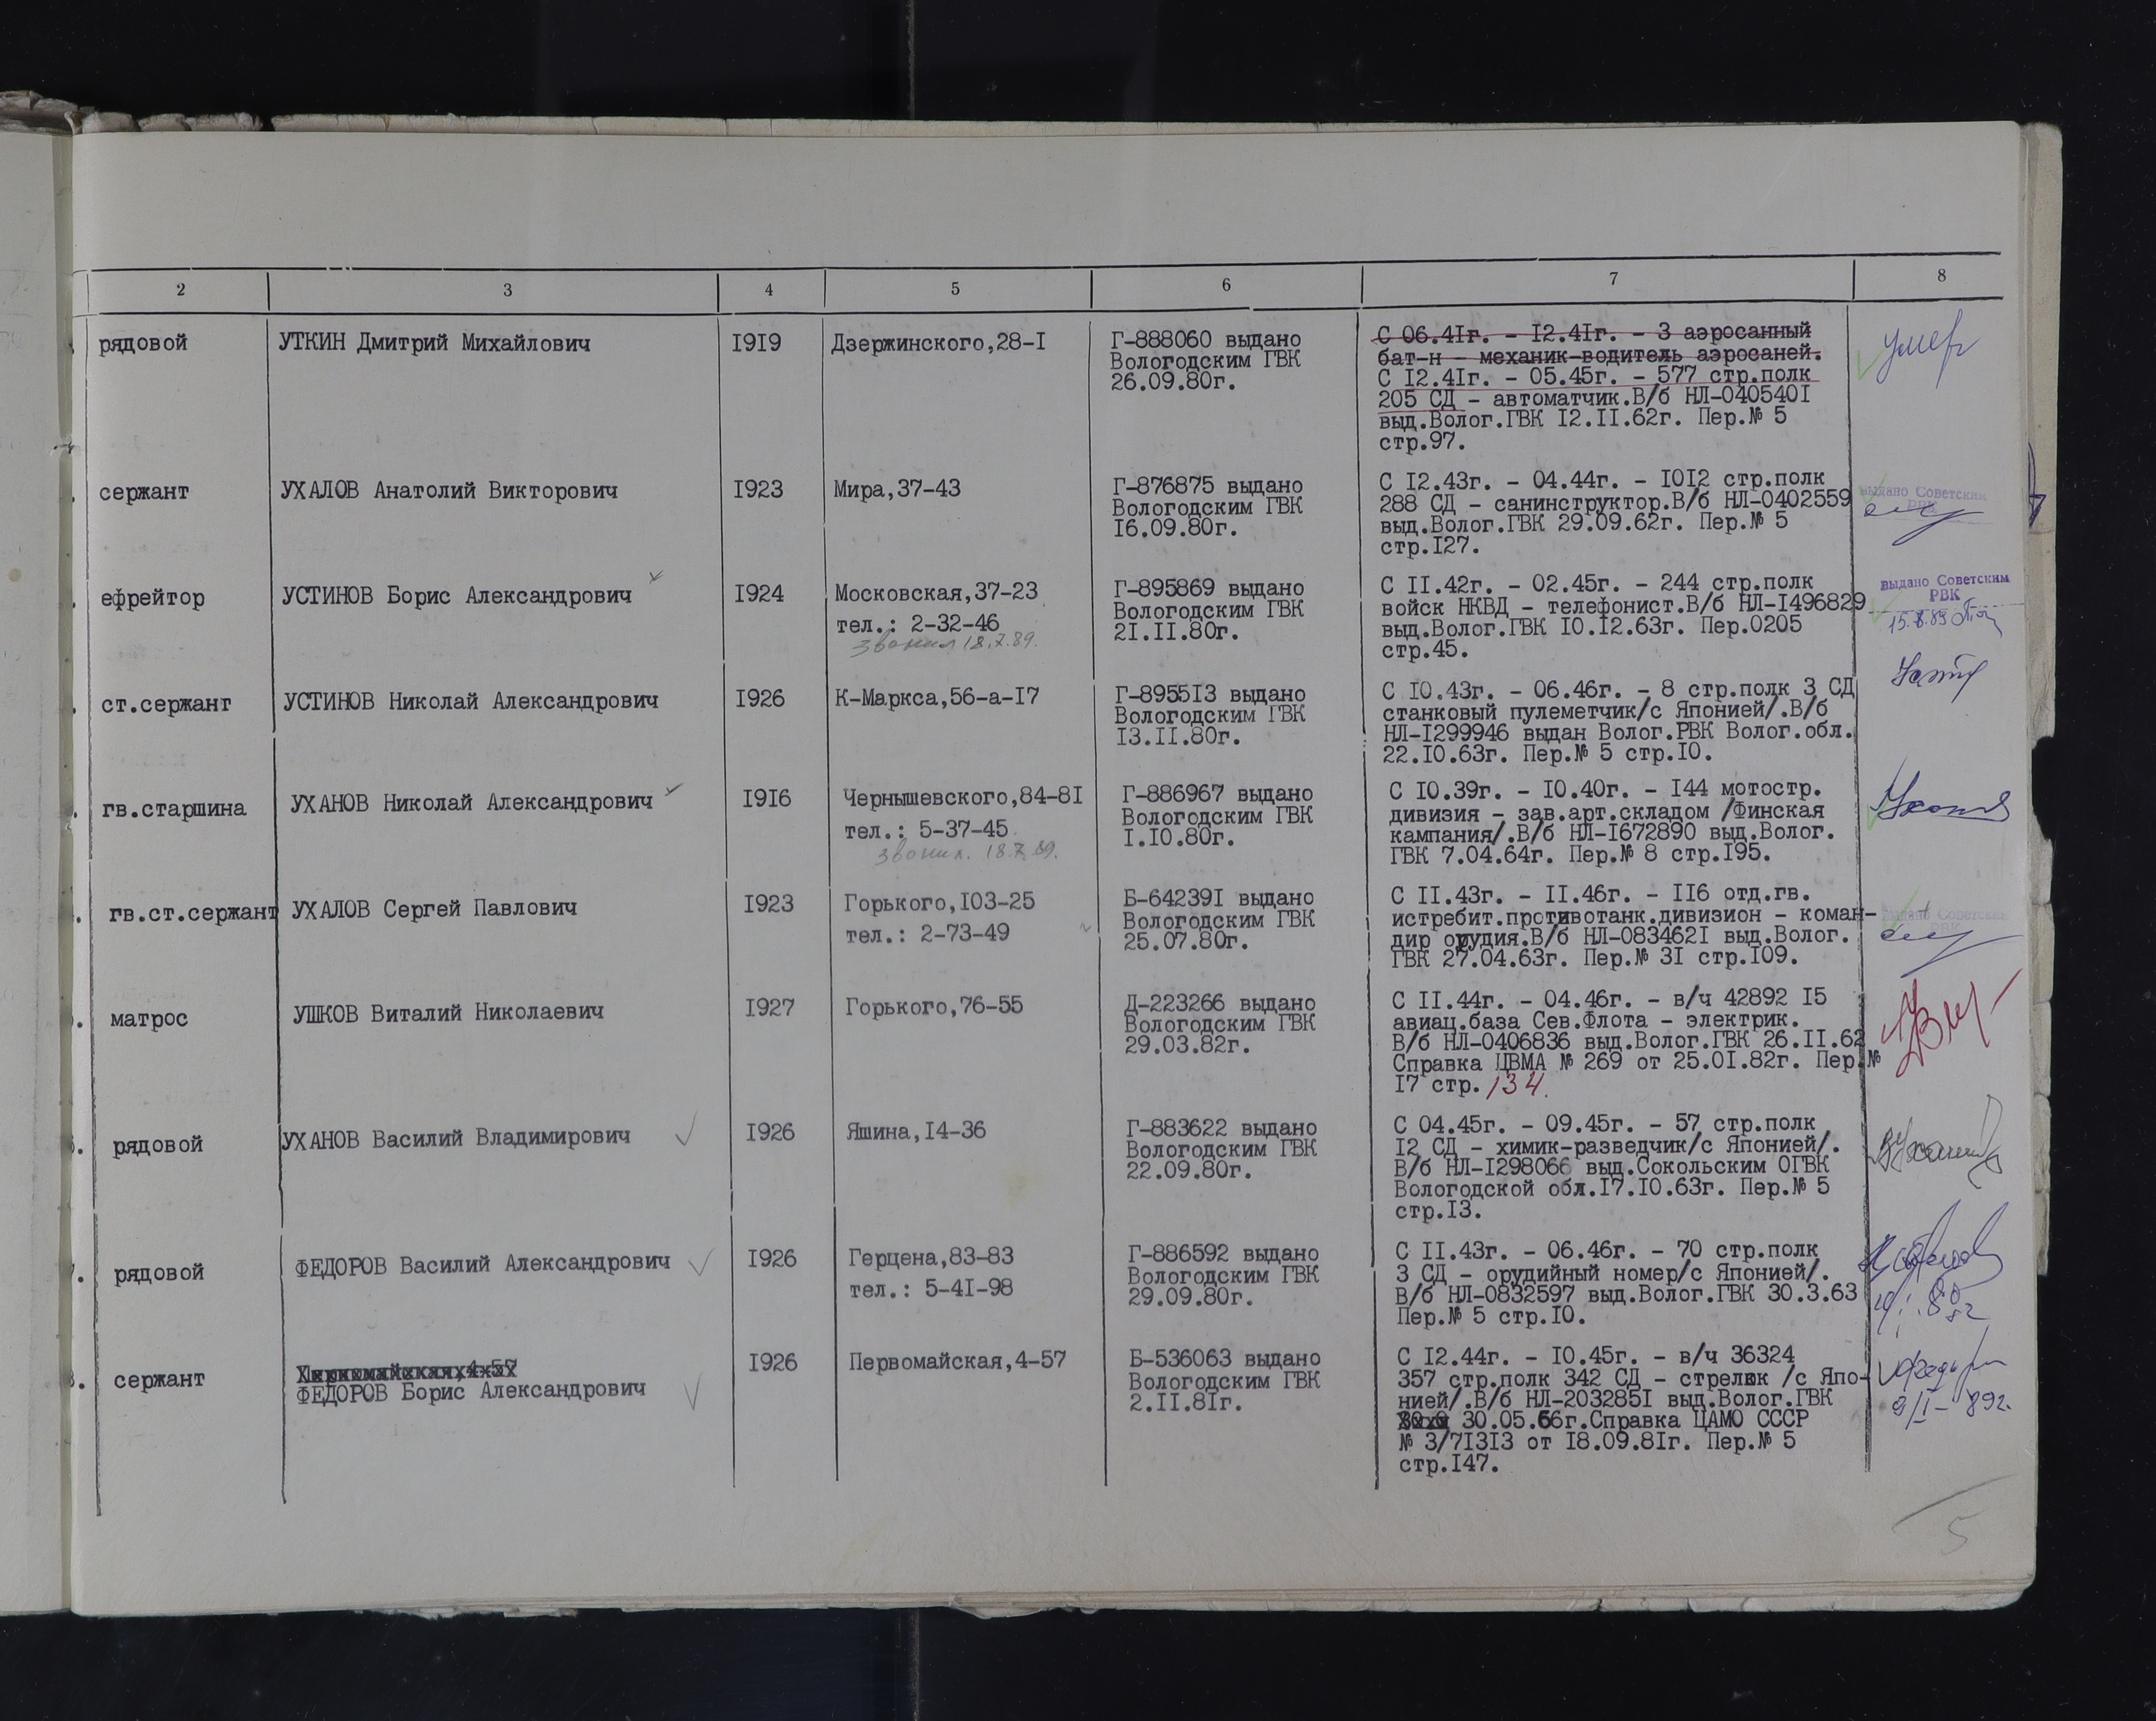 2 3 4 5 6 7 8
рядовой УТКИН Дмитрий Михайлович 1919 Дзержинского,28-1 Г-888060 выдано С 06.41г. - 12.41г. - 3 аэросанный умер
Вологодским ГВК бат-н - механик-водитель аэросаней.
26.09.80г. С 12.41г. - 05.45г. - 577 стр.полк
205 СД - автоматчик.В/б НЛ-0405401
выд.Волог.ГВК 12.11.62г. Пер.№ 5
стр.97.
сержант УХАЛОВ Анатолий Викторович 1923 Мира,37-43 Г-876875 выдано С 12.43г. - 04.44г. - 1012 стр.полк выдано Советским
Вологодским ГВК 288 СД - санинструктор.В/б НЛ-0402559 РВК
16.09.80г. выд.Волог.ГВК 29.09.62г. Пер.№ 5
стр.127.
ефрейтор УСТИНОВ Борис Александрович 1924 Московская,37-23 Г-895869 выдано С 11.42г. - 02.45г. - 244 стр.полк выдано Советским
тел.: 2-32-46 Вологодским ГВК войск НКВД - телефонист.В/б НЛ-1496829 РВК
звонил 18.7.89. 21.11.80г. выд.Волог.ГВК 10.12.63г. Пер.0205
стр.45.
ст.сержант УСТИНОВ Николай Александрович 1926 К-Маркса,56-а-17 Г-895513 выдано С 10.43г. - 06.46г. - 8 стр.полк 3 СД
Вологодским ГВК станковый пулеметчик/с Японией/.В/б
13.11.80г. НЛ-1299946 выдан Волог.РВК Волог.обл.
22.10.63г. Пер.№ 5 стр.10.
гв.старшина УХАНОВ Николай Александрович 1916 Чернышевского,84-81 Г-886967 выдано С 10.39г. - 10.40г. - 144 мотостр.
тел.: 5-37-45 Вологодским ГВК дивизия - зав.арт.складом /Финская
звонил. 18.7.89. 1.10.80г. кампания/.В/б НЛ-1672890 выд.Волог.
ГВК 7.04.64г. Пер.№ 8 стр.195.
гв.ст.сержант УХАЛОВ Сергей Павлович 1923 Горького,103-25 Б-642391 выдано С 11.43г. - 11.46г. - 116 отд.гв.
тел.: 2-73-49 Вологодским ГВК истребит.противотанк.дивизион - коман- выдано Советским
25.07.80г. дир орудия.В/б НЛ-0834621 выд.Волог. РВК
ГВК 27.04.63г. Пер.№ 31 стр.109.
матрос УШКОВ Виталий Николаевич 1927 Горького,76-55 Д-223266 выдано С 11.44г. - 04.46г. - в/ч 42892 15
Вологодским ГВК авиац.база Сев.Флота - электрик.
29.03.82г. В/б НЛ-0406836 выд.Волог.ГВК 26.11.62
Справка ЦВМА № 269 от 25.01.82г. Пер.№
17 стр. 134.
рядовой УХАНОВ Василий Владимирович 1926 Яшина,14-36 Г-883622 выдано С 04.45г. - 09.45г. - 57 стр.полк
Вологодским ГВК 12 СД - химик-разведчик/с Японией/.
22.09.80г. В/б НЛ-1298066 выд.Сокольским ОГВК
Вологодской обл.17.10.63г. Пер.№ 5
стр.13.
рядовой ФЕДОРОВ Василий Александрович 1926 Герцена,83-83 Г-886592 выдано С 11.43г. - 06.46г. - 70 стр.полк
тел.: 5-41-98 Вологодским ГВК 3 СД - орудийный номер/с Японией/.
29.09.80г. В/б НЛ-0832597 выд.Волог.ГВК 30.3.63
Пер.№ 5 стр.10.
сержант Первомайская,4-57 1926 Первомайская,4-57 Б-536063 выдано С 12.44г. - 10.45г. - в/ч 36324
ФЕДОРОВ Борис Александрович Вологодским ГВК 357 стр.полк 342 СД - стрелок /с Япо-
2.11.81г. нией/.В/б НЛ-2032851 выд.Волог.ГВК 9/I-89г.
30.05.66г.Справка ЦАМО СССР
№ 3/71313 от 18.09.81г. Пер.№ 5
стр.147.
5